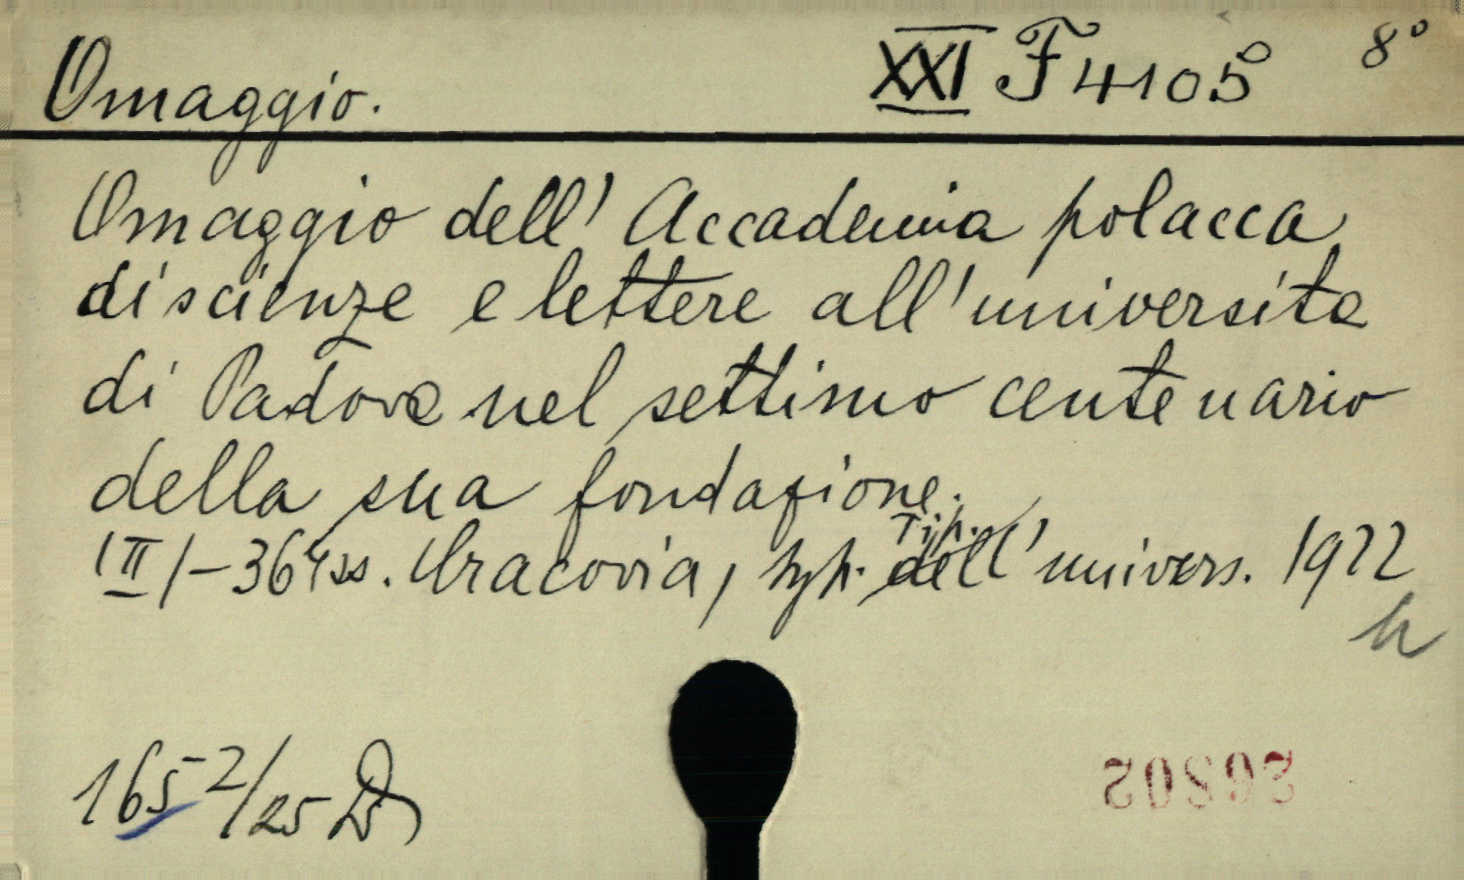 Omaggio. XXI F 4105 8°
Omaggio dell' Accademia polacca
di scienze e lettere all'universita
di Padova nel settimo centenario
della sua fondazione.
Tip.
(II)-364 ss. Cracovia, typ. dell' univers. 1922
h
1652/25